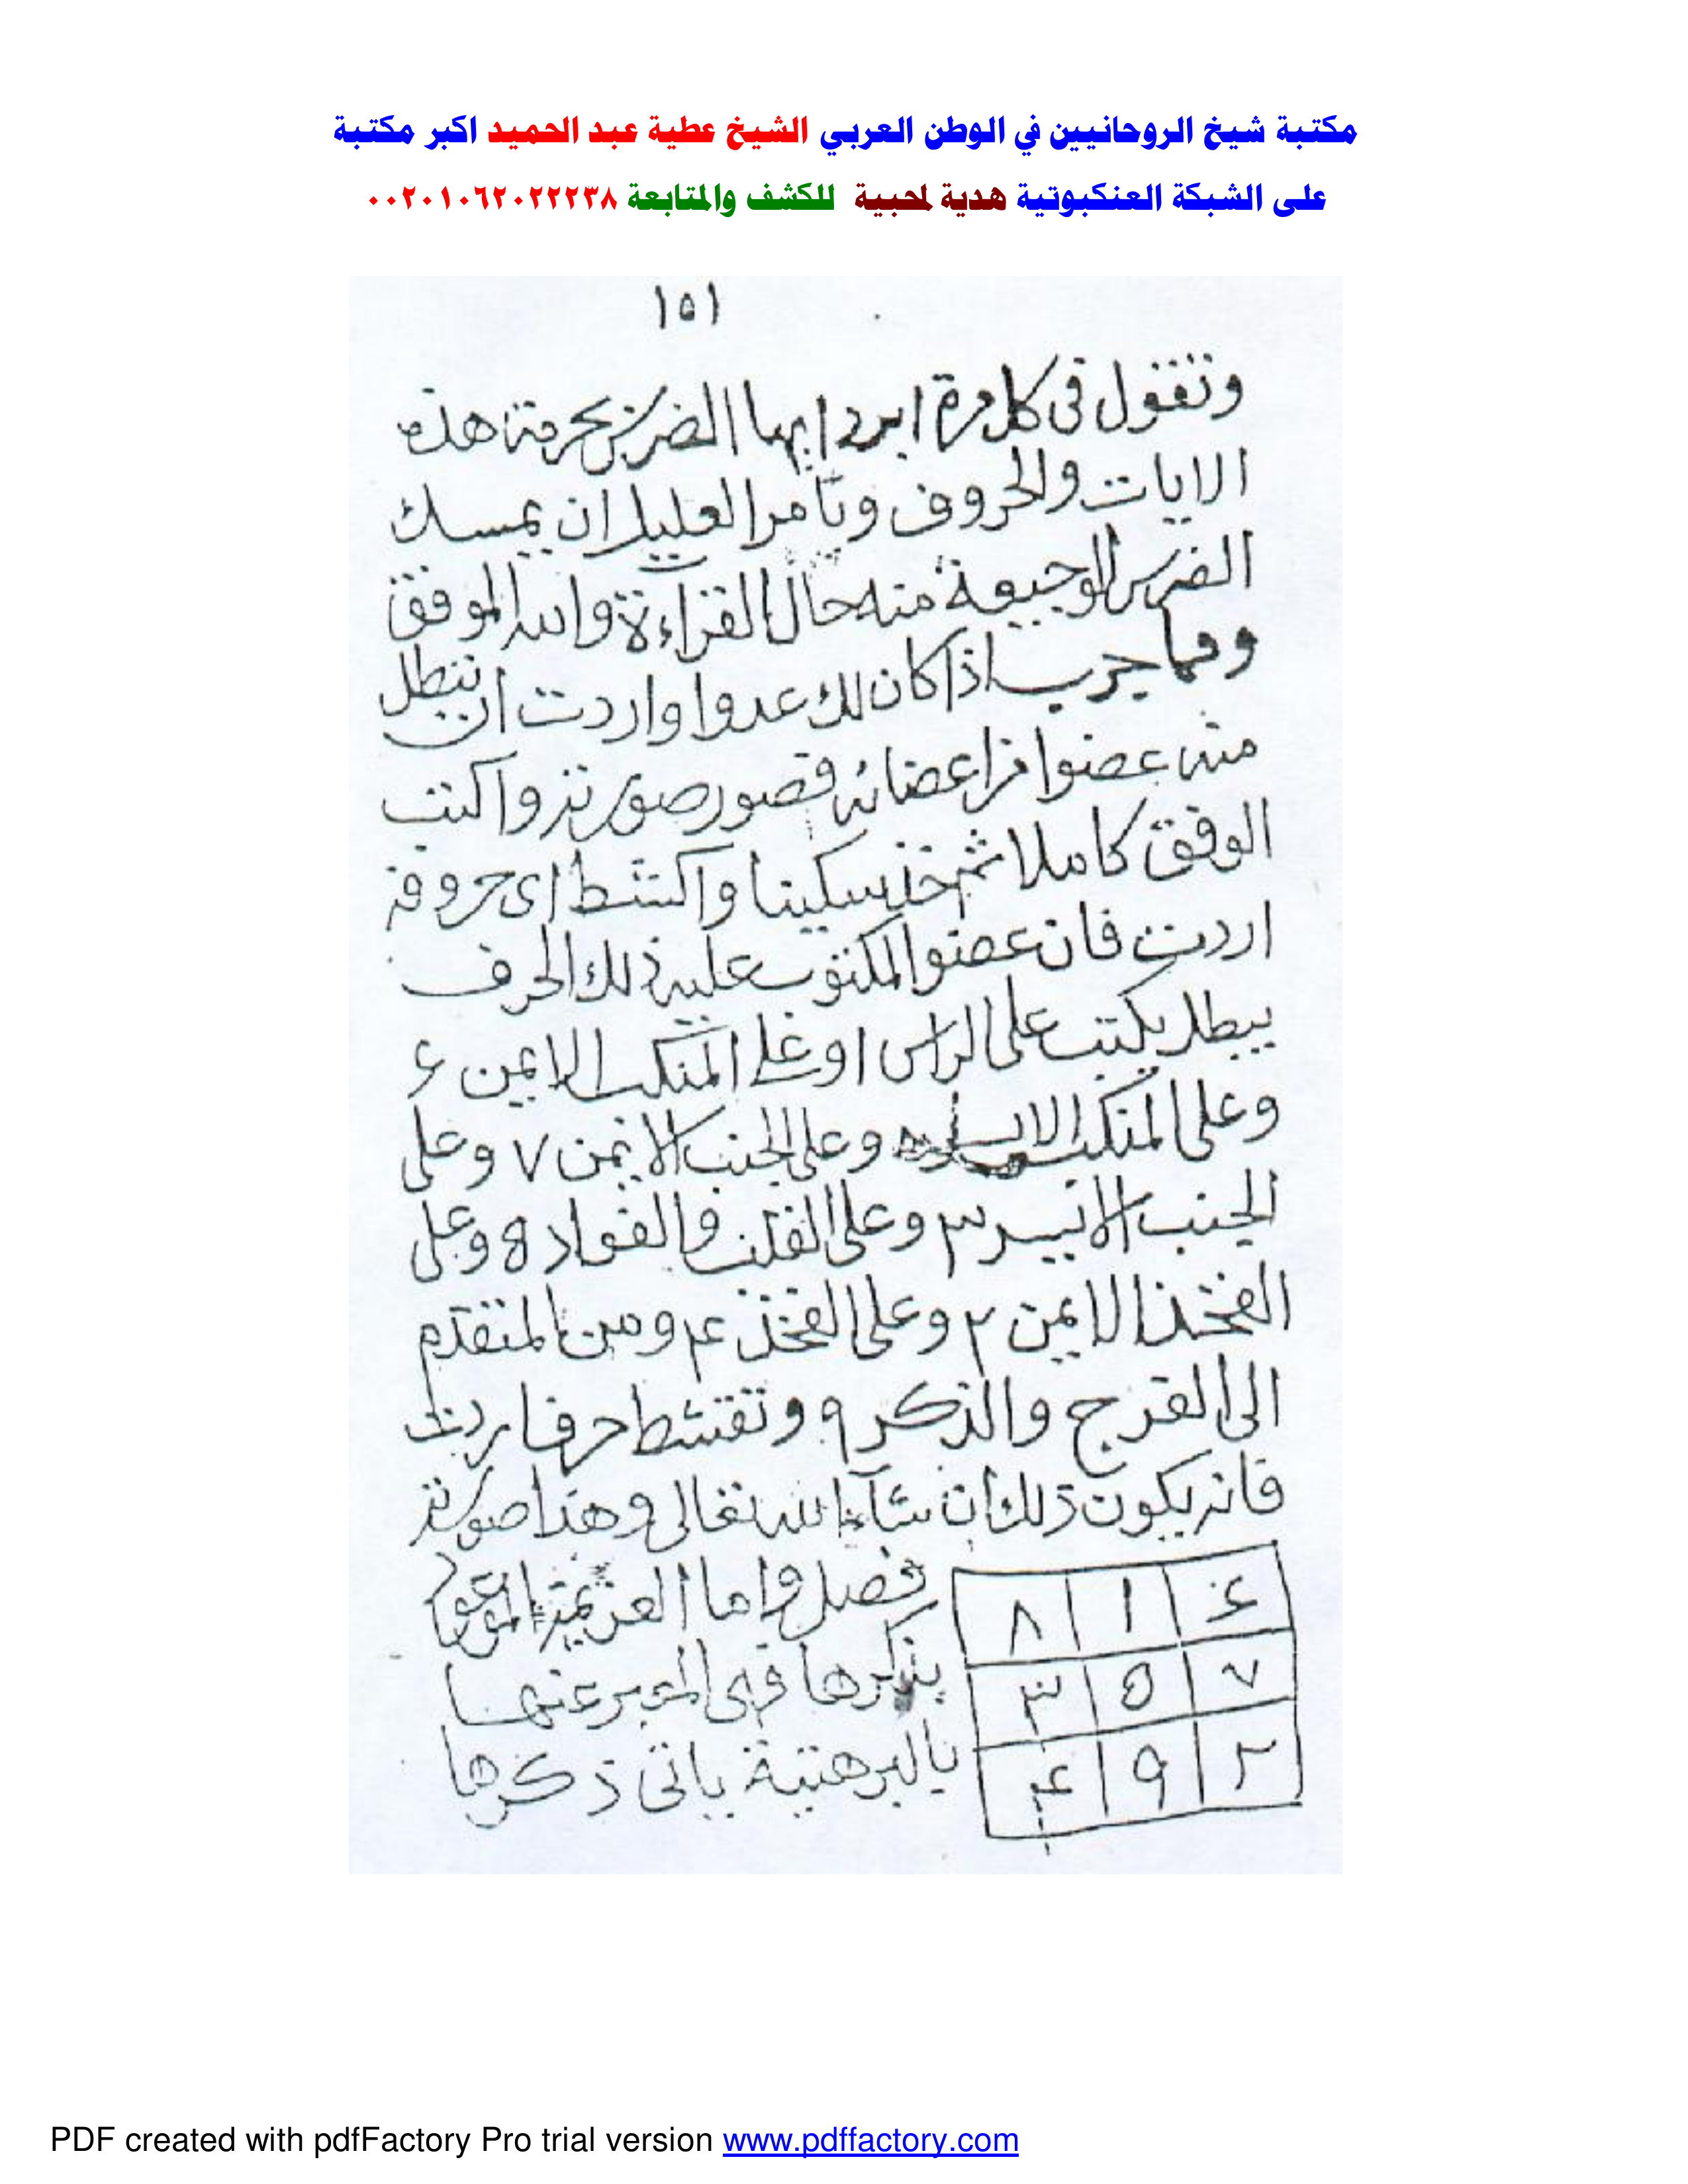 مكتبة شيخ الروحانيين في الوطن العربي الشيخ عطية عبد الحميد اكبر مكتبة
على الشبكة العنكبوتية هدية لمحبية للكشف والمتابعة ٠٠٢٠١٠٦٢٠٢٢٢٣٨
١٥١
وتقول فى كل مرة ابرد ايها الضرس بحرمة هذه
الايات والحروف وتأمر العليل ان يمسك
الضرس الوجيعة منه حال القراءة والله الموفق
ومما جرب اذا كان لك عدوا واردت ان تبطل
منه عضوا من اعضائه فصور صورته واكتب
الوفق كاملا ثم خذ سكينا واكشط اى حروفه
اردت فان عضوا المكتوب عليه ذلك الحرف
يبطل يكتب على الراس ا وعلى المنكب الايمن ٤
وعلى المنكب الايسر ٨ وعلى الجنب الايمن ٧ وعلى
الجنب الايسر ٣ وعلى القلب والفواد ٥ وعلى
الفخذ الايمن ٢ وعلى الفخذ ٤ ومن المتقدم
الى الفرج والذكر ٩ وتقشط حرفا
فانه يكون ذلك ان شآء الله تعالى وهذا صورته
فصل واما العزيمة الموعود
بذكرها فهى المعبر عنها
بالبرهتية ياتى ذكرها
٨ ١ ٤
٣ ٥ ٧
٤ ٩ ٢
PDF created with pdfFactory Pro trial version www.pdffactory.com